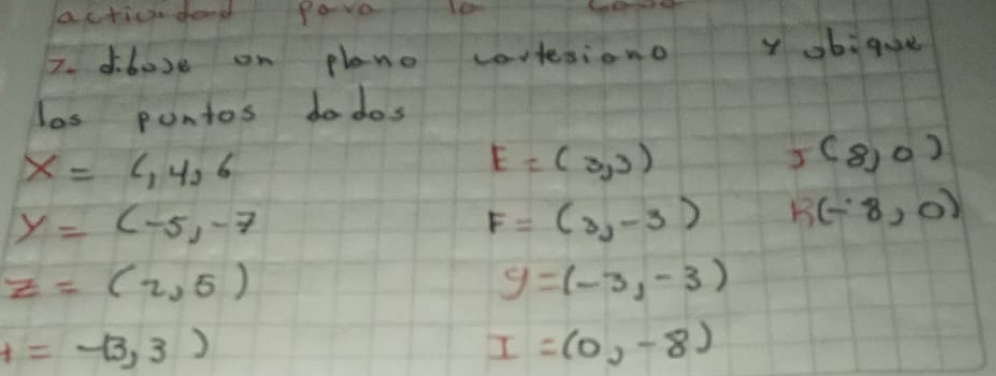 actividad para la casa
7. dibuje un plano cartesiano y ubique
los puntos dados
X = (, 4, 6 E = (3,3) J (8,0)
Y = (-5, -7 F = (3, -3) K(-8, 0)
Z = (2, 5) g = (-3, -3)
= -(3, 3) I = (0, -8)